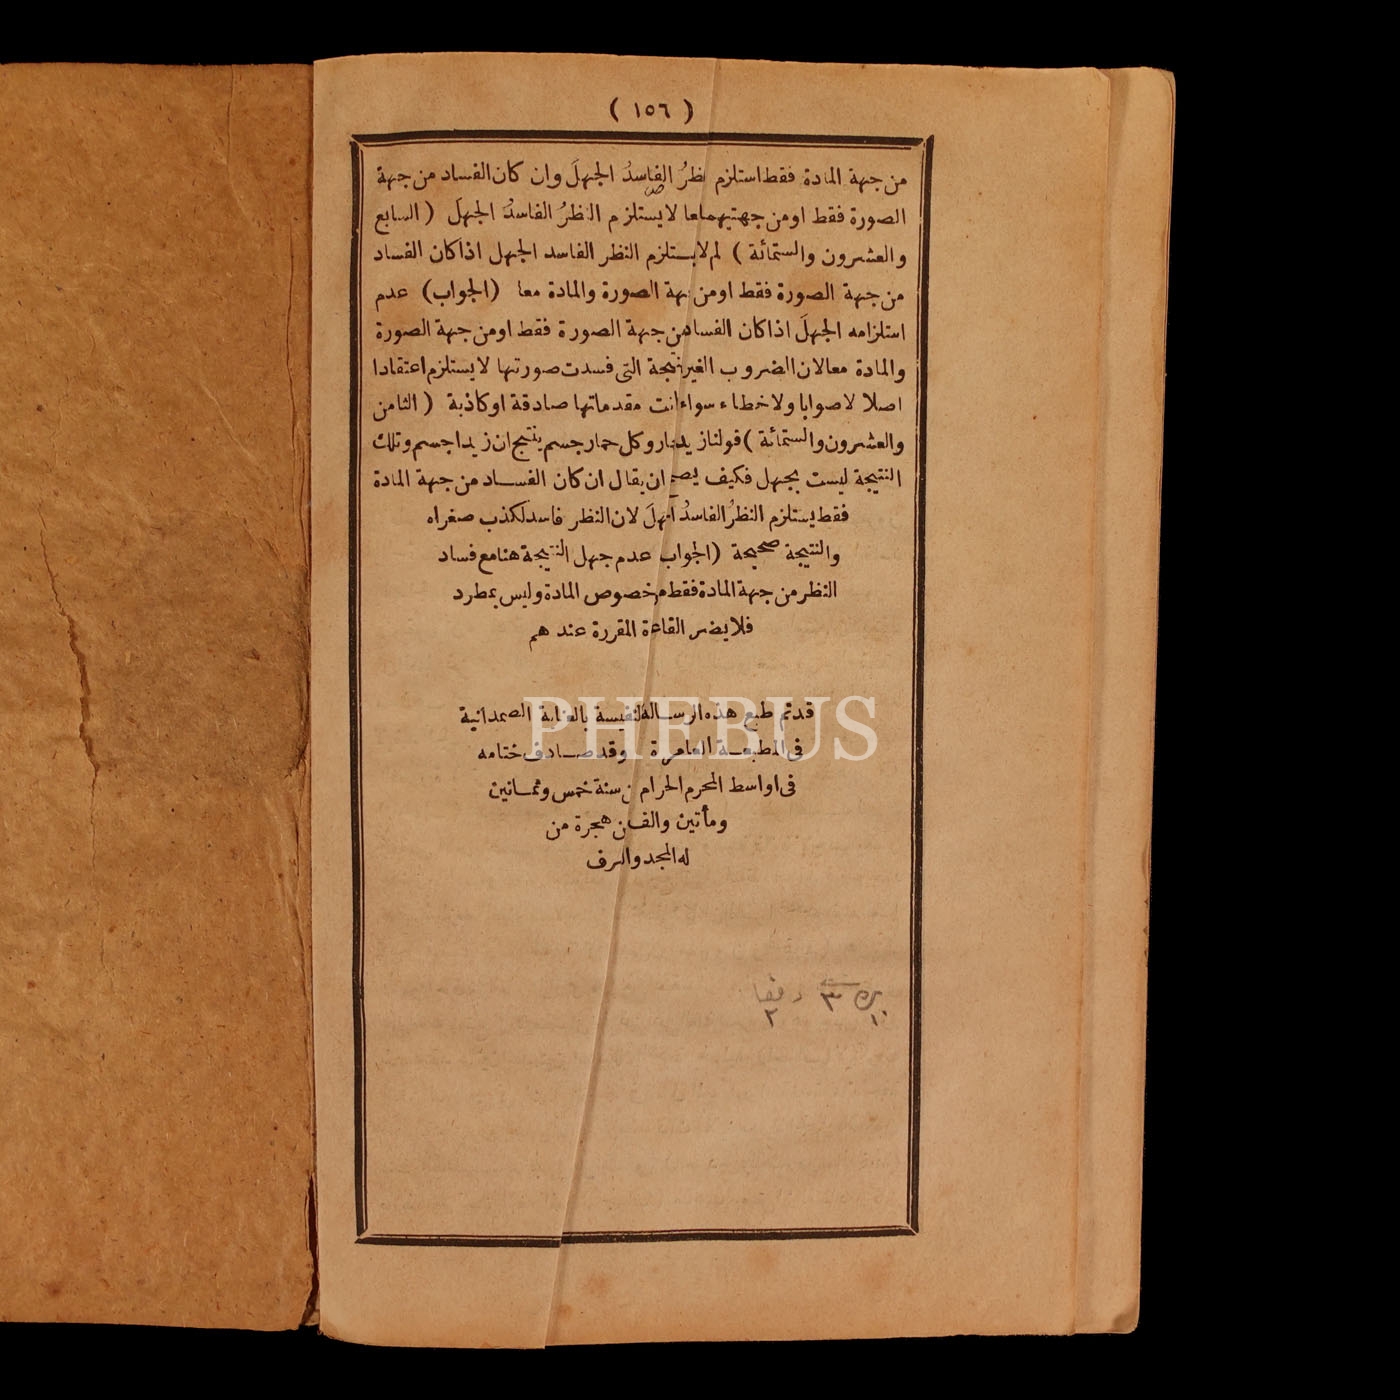 ( ١٥٦ )
من جهة المادة فقط استلزم النظرُ الفاسدُ الجهلَ وان كان الفساد من جهة
الصورة فقط اومن جهتيهما معا لا يستلزم النظرُ الفاسدُ الجهلَ ( السابع
والعشرون والستمائة ) لم لا يستلزم النظر الفاسد الجهل اذا كان الفساد
من جهة الصورة فقط اومن جهة الصورة والمادة معا (الجواب) عدم
استلزامه الجهلَ اذا كان الفساد من جهة الصورة فقط اومن جهة الصورة
والمادة معا لان الضروب الغير المنتجة التى فسدت صورتها لا يستلزم اعتقادا
اصلا لا صوابا ولا خطاء سواء كانت مقدماتها صادقة او كاذبة ( الثامن
والعشرون والستمائة ) قولنا زيد حمار وكل حمار جسم ينتج ان زيدا جسم وتلك
النتيجة ليست بجهل فكيف يصح ان يقال ان كان الفساد من جهة المادة
فقط يستلزم النظرُ الفاسدُ الجهلَ لان النظر فاسد لكذب صغراه
والنتيجة صحيحة (الجواب عدم جهل النتيجة هنا مع فساد
النظر من جهة المادة فقط من خصوص المادة وليس بمطرد
فلا يضر القاعدة المقررة عند هم
قدتم طبع هذه الرسالة النفيسة بالعناية الصمدانية
فى المطبعة العامرة وقد صادف ختامه
فى اواسط المحرم الحرام من سنة خمس وثمانين
ومأتين والف من هجرة من
له المجد والشرف
٣
١٠
٢
PHEBUS